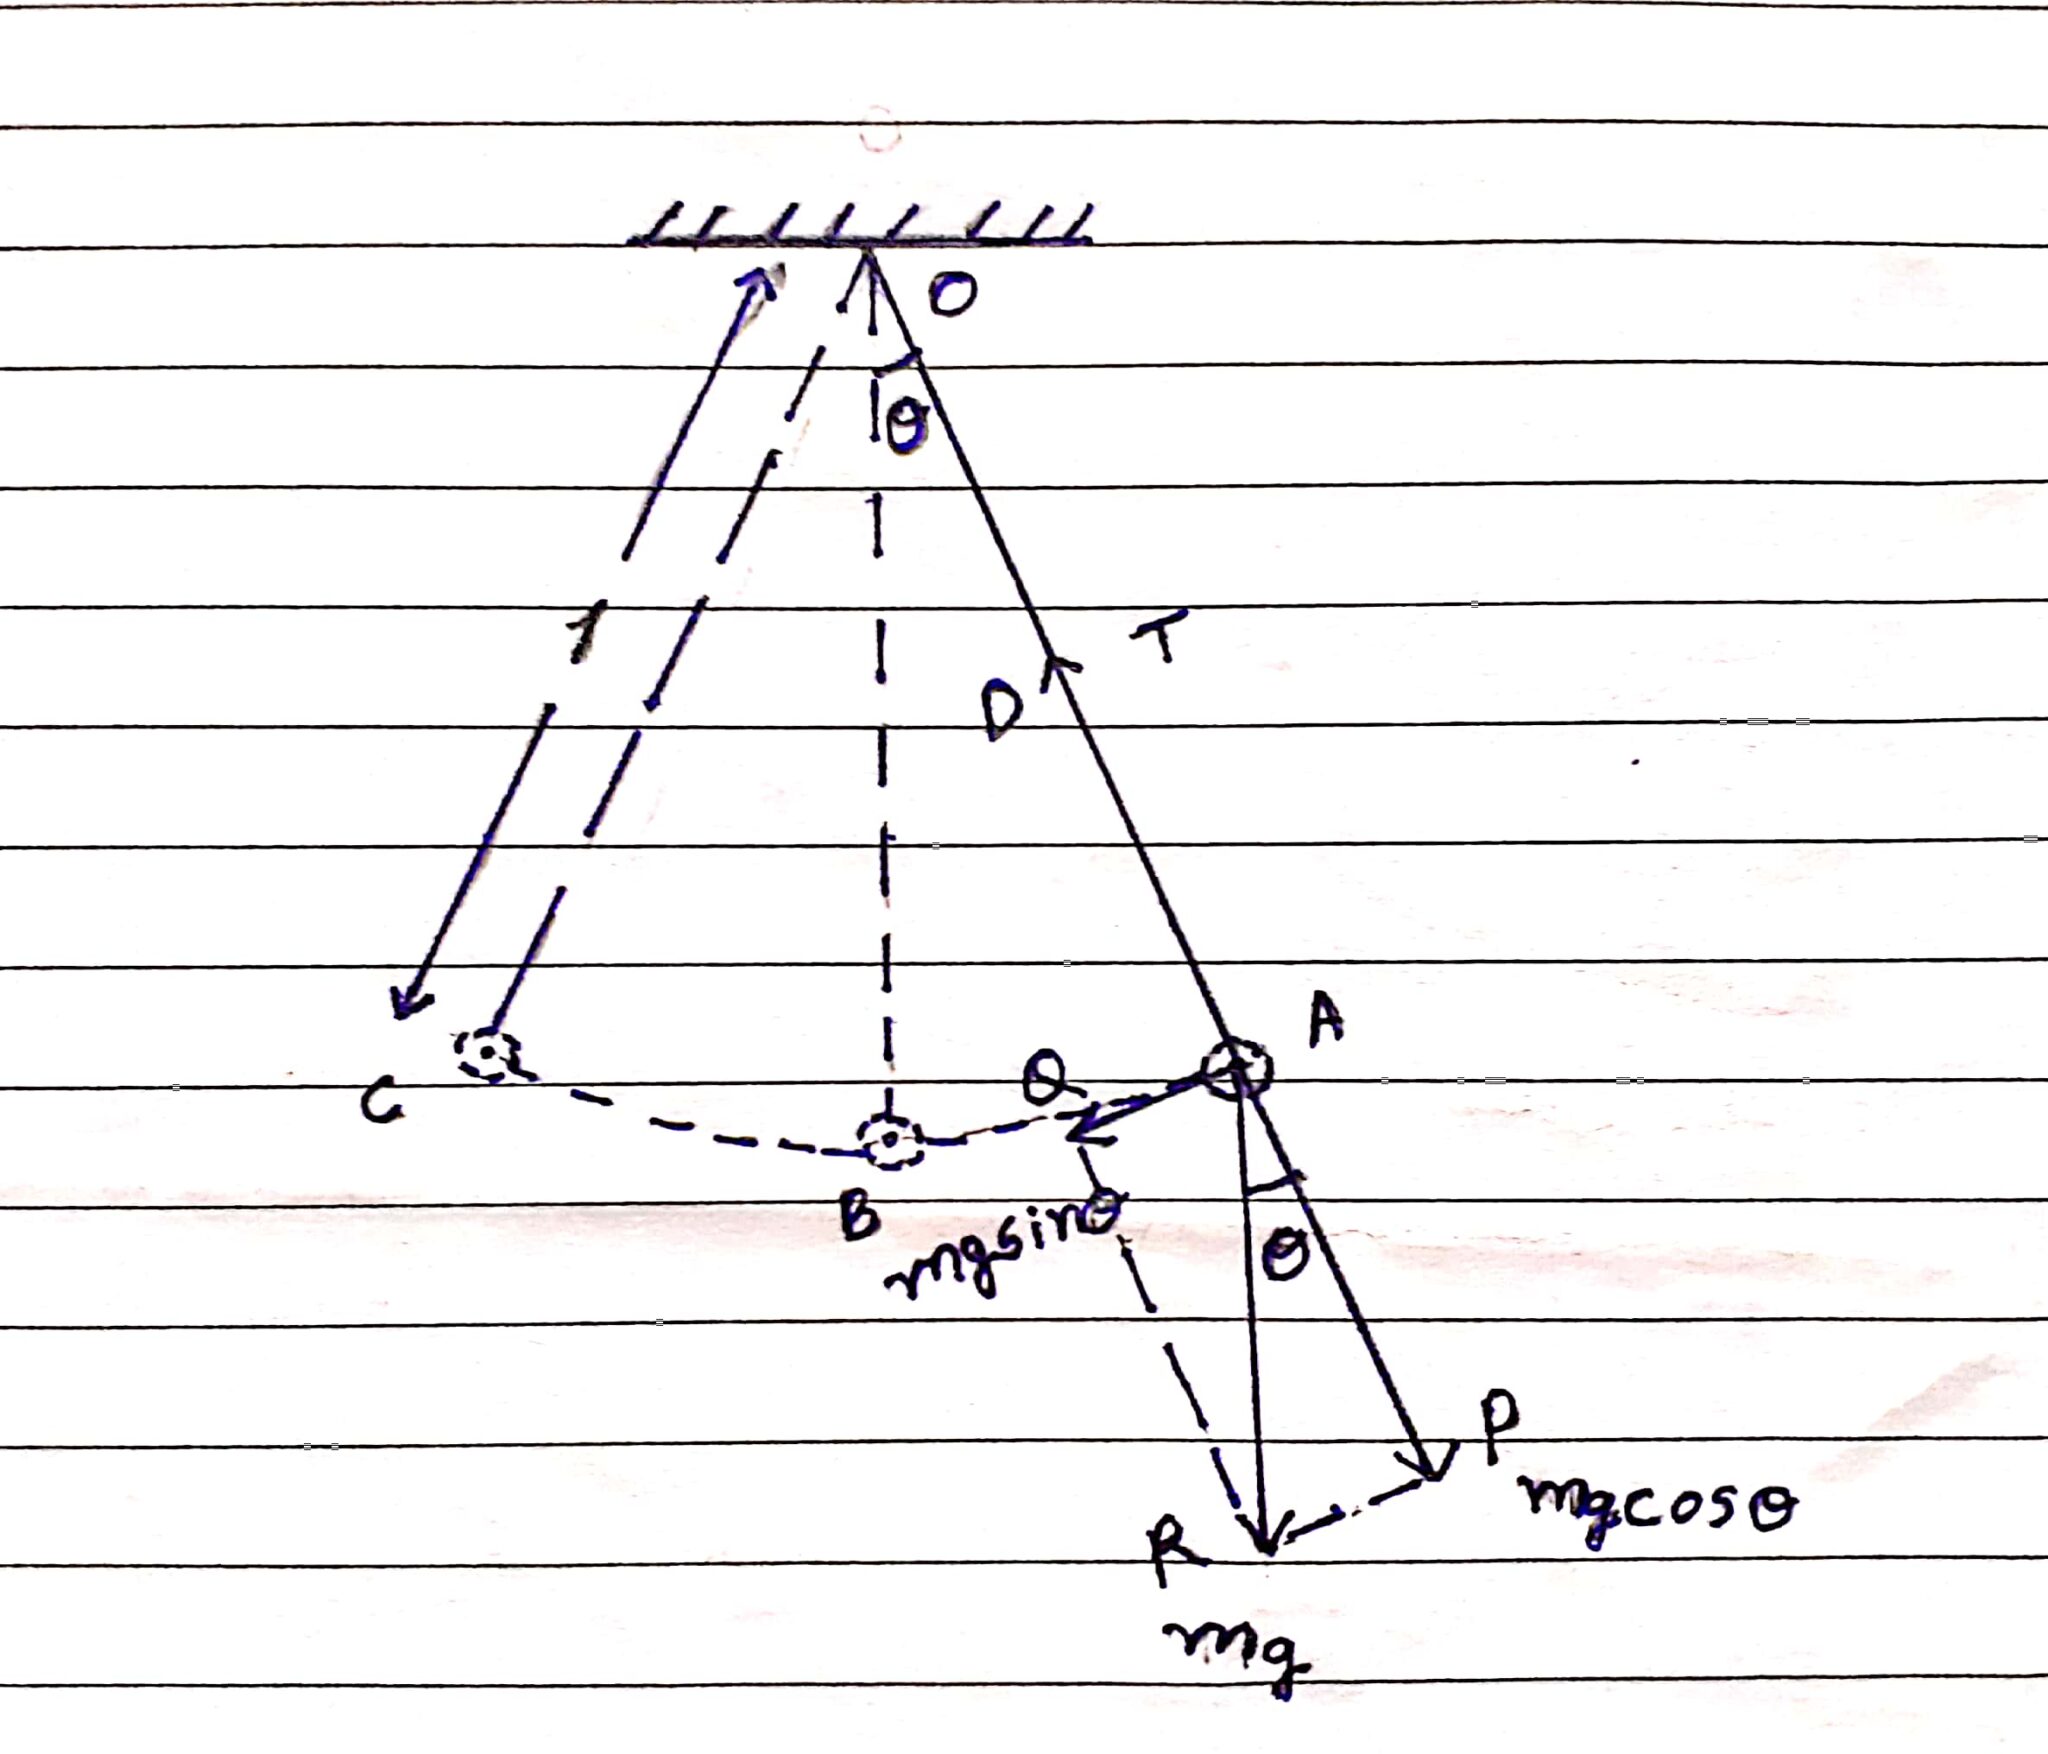 O
θ
l
T
D
A
Q
C
B
mgsinθ
θ
P
mgcosθ
R
mg